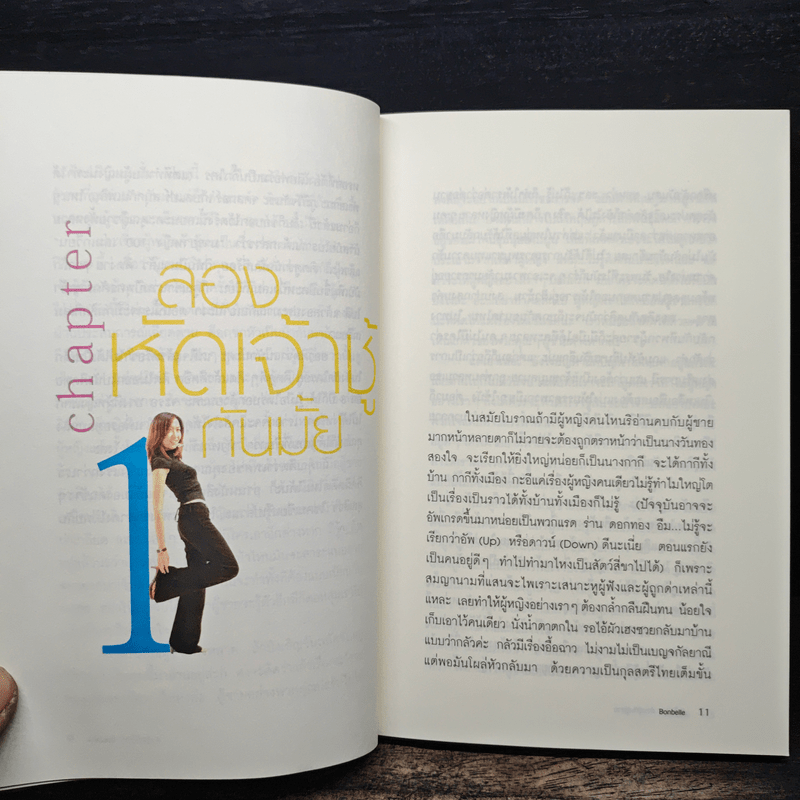 chapter
1
ลอง
หัดเจ้าชู้
กันมั้ย
ในสมัยโบราณถ้ามีผู้หญิงคนไหนริอ่านคบกับผู้ชาย
มากหน้าหลายตาก็ไม่วายจะต้องถูกตราหน้าว่าเป็นนางวันทอง
สองใจ จะเรียกให้ยิ่งใหญ่หน่อยก็เป็นนางกากี จะได้กากีทั้ง
บ้าน กากีทั้งเมือง กะอีแค่เรื่องผู้หญิงคนเดียวไม่รู้ทำไมใหญ่โต
เป็นเรื่องเป็นราวได้ทั้งบ้านทั้งเมืองก็ไม่รู้ (ปัจจุบันอาจจะ
อัพเกรดขึ้นมาหน่อยเป็นพวกแรด ร่าน ดอกทอง อืม...ไม่รู้จะ
เรียกว่าอัพ (Up) หรือดาวน์ (Down) ดีนะเนี่ย ตอนแรกยัง
เป็นคนอยู่ดีๆ ทำไปทำมาไหงเป็นสัตว์สี่ขาไปได้) ก็เพราะ
สมญานามที่แสนจะไพเราะเสนาะหูผู้ฟังและผู้ถูกด่าเหล่านี้
แหละ เลยทำให้ผู้หญิงอย่างเราๆ ต้องกล้ำกลืนฝืนทน น้อยใจ
เก็บเอาไว้คนเดียว นั่งน้ำตาตกใน รอไอ้ผัวเฮงซวยกลับมาบ้าน
แบบว่ากลัวค่ะ กลัวมีเรื่องอื้อฉาว ไม่งามไม่เป็นเบญจกัลยาณี
แต่พอมันโผล่หัวกลับมา ด้วยความเป็นกุลสตรีไทยเต็มขั้น
Bonbelle 11